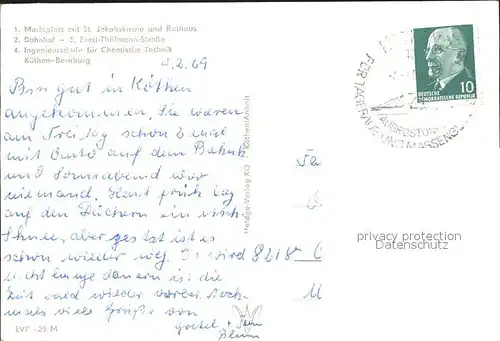 1. Marktplatz mit St. Jakobskirche und Rathaus
2. Bahnhof - 3. Ernst-Thälmann-Straße
4. Ingenieurschule für Chemische Technik
Köthen-Bernburg
4.2.69
Bin gut in Köthen
angekommen. Sie waren
am Freitag schon 2 mal
mit Auto auf dem Bahnh.
und Sonnabend war
niemand. Heut früh lag
auf den Dächern ein
Schnee, aber jetzt ist es
schon wieder weg. Es wird
nicht lange dauern ist die
Zeit wieder vorbei. Noch-
mals viele Grüße von
Gretel +
EVP -,25 M
Köthen/Anhalt
8218
10
DEUTSCHE
DEMOKRATISCHE REPUBLIK
FÜR
AUSRÜSTUN
UND MASSENG
privacy protection
Datenschutz